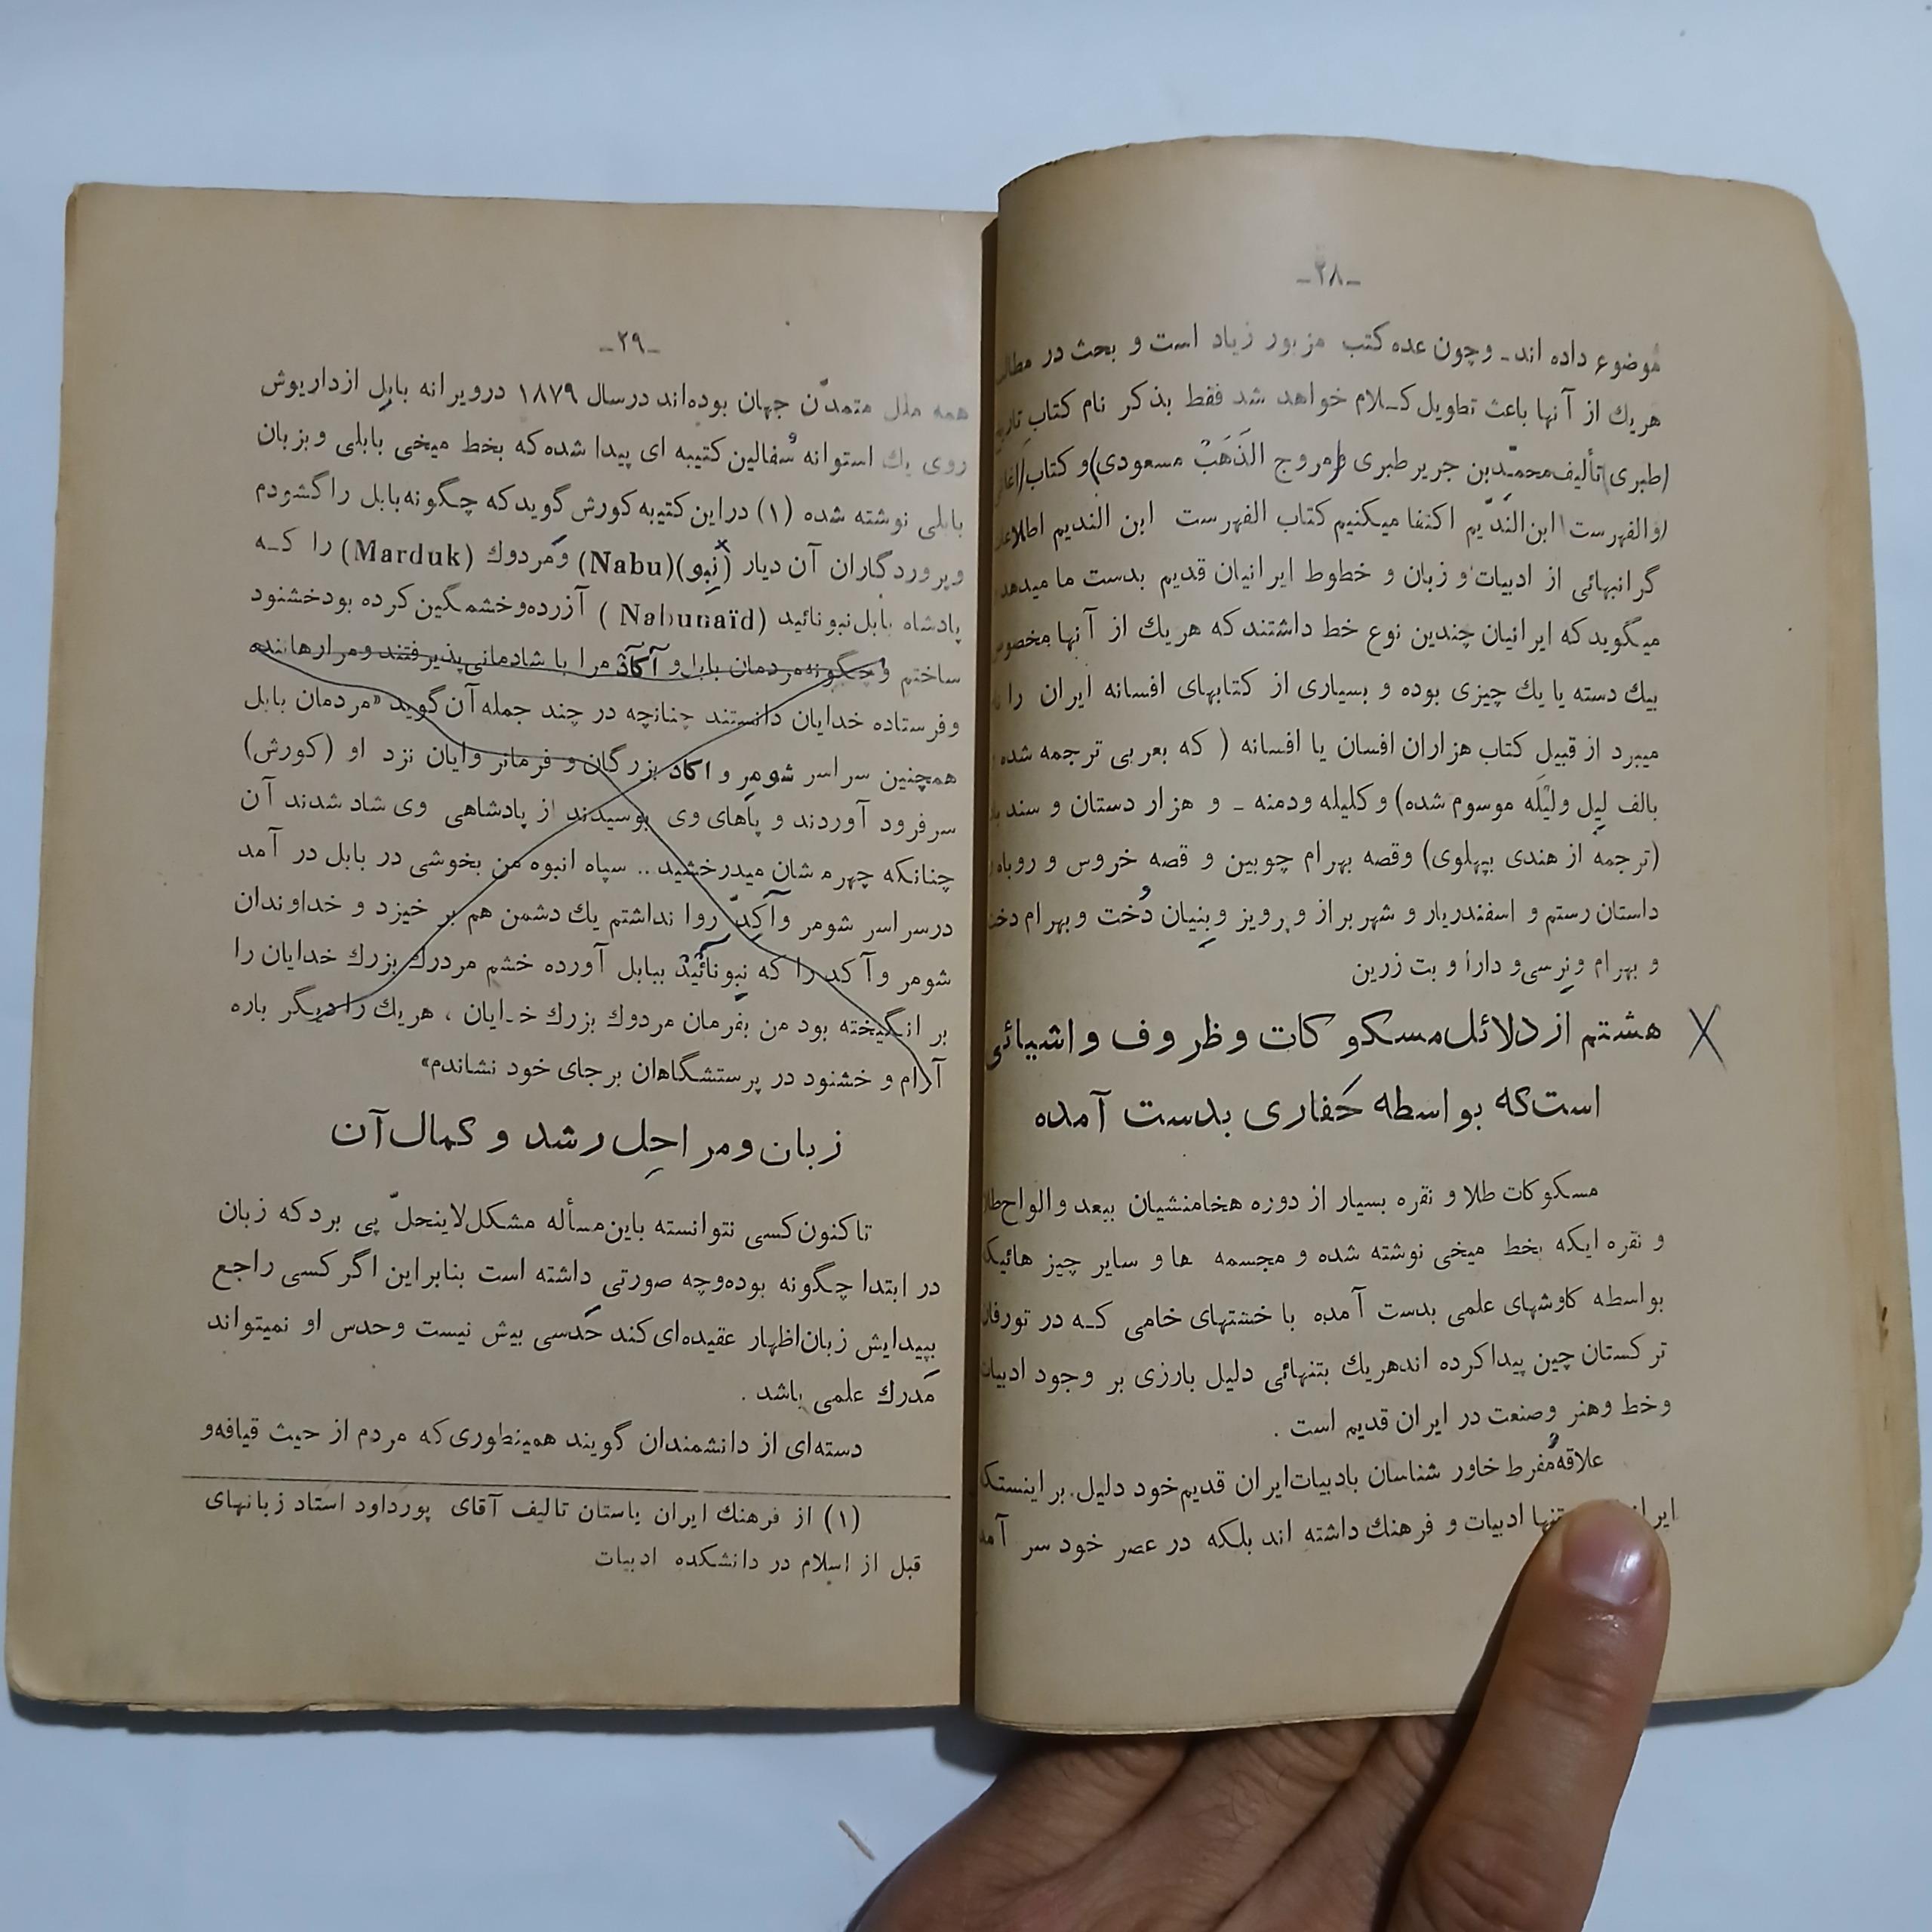 -۲۸-
موضوع داده اند ـ وچون عده کتب مزبور زیاد است و بحث در
هریك از آنها باعث تطویل کـلام خواهد شد فقط بذکر نام کتاب
(طبری) تألیف محمّدبن جریر طبری و (مروج الذَهَبْ مسعودی) و کتاب
(والفهرست) ابن الندّیم اکتفا میکنیم کتاب الفهرست ابن الندیم
گرانبهائی از ادبیات و زبان و خطوط ایرانیان قدیم بدست ما میدهد
میگوید که ایرانیان چندین نوع خط داشتند که هریك از آنها مخصوص
بیك دسته یا یك چیزی بوده و بسیاری از کتابهای افسانه ایران را
میبرد از قبیل کتاب هزاران افسان یا افسانه ( که بعربی ترجمه شده
بالف لیِل ولیْلَه موسوم شده) و کلیله ودمنه ـ و هزار دستان و سند
(ترجمه از هندی بپهلوی) وقصه بهرام چوبین و قصه خروس و روباه
داستان رستم و اسفندریار و شهربراز و پرویز وبِنیان دُخت وبهرام
و بهرام ونِرسی و دارا و بت زرین
هشتم از دلائل مسکوکات وظروف واشیائی
است که بواسطه حَفاری بدست آمده
مسکوکات طلا و نقره بسیار از دوره هخامنشیان ببعد والواح طلا
و نقره ایکه بخط میخی نوشته شده و مجسمه ها و سایر چیز هائیکه
بواسطه کاوشهای علمی بدست آمده با خشتهای خامی کـه در تورفان
ترکستان چین پیداکرده اندهریك بتنهائی دلیل بارزی بر وجود ادبیات
وخط وهنر وصنعت در ایران قدیم است .
علاقه مُفرط خاور شناسان بادبیات ایران قدیم خود دلیل بر اینستکه
تنها ادبیات و فرهنك داشته اند بلکه در عصر خود سر آمد
-۲۹-
همه ملل متمدّن جهان بوده‌اند درسال ۱۸۷۹ درویرانه بابِل ازداریوش
روی یك استوانه سُفالین کتیبه ای پیدا شده که بخط میخی بابلی وبزبان
بابلی نوشته شده (۱) دراین کتیبه کورش گوید که چگونه بابل را گشودم
وپروردگاران آن دیار (نِبو)(Nabu) ومَردوك (Marduk) را کـه
پادشاه بابل نبونائید (Nabunaïd ) آزرده وخشمگین کرده بودخشنود
ساختم و چگونه مردمان بابل و آکاَدْ مرا با شادمانی پذیرفتند ومرارهاننده
وفرستاده خدایان دانستند چنانچه در چند جمله آن گوید «مردمان بابل
همچنین سراسر شومِر و اکاد بزرگان و فرمانروایان نزد او (کورش)
سرفرود آوردند و پاهای وی بوسیدند از پادشاهی وی شاد شدند آن
چنانکه چهره شان میدرخشید .. سپاه انبوه من بخوشی در بابل در آمد
درسراسر شومر وآکِدّ روا نداشتم یك دشمن هم بر خیزد و خداوندان
شومر وآکد را که نِبونائیْدْ ببابل آورده خشم مردك بزرك خدایان را
بر انگیخته بود من بفرمان مردوك بزرك خدایان ، هریك را دیگر باره
آرام و خشنود در پرستشگاهان برجای خود نشاندم»
زبان ومراحِل رشد و کمال آن
تاکنون کسی نتوانسته باین مسأله مشکل لاینحلّ پی بردکه زبان
در ابتدا چگونه بوده وچه صورتی داشته است بنابراین اگر کسی راجع
بپیدایش زبان اظهار عقیده‌ای کند حَدسی بیش نیست وحدس او نمیتواند
مَدرك علمی باشد .
دسته‌ای از دانشمندان گویند همینطوری که مردم از حیث قیافه و
(۱) از فرهنك ایران باستان تالیف آقای پورداود استاد زبانهای
قبل از اسلام در دانشکده ادبیات